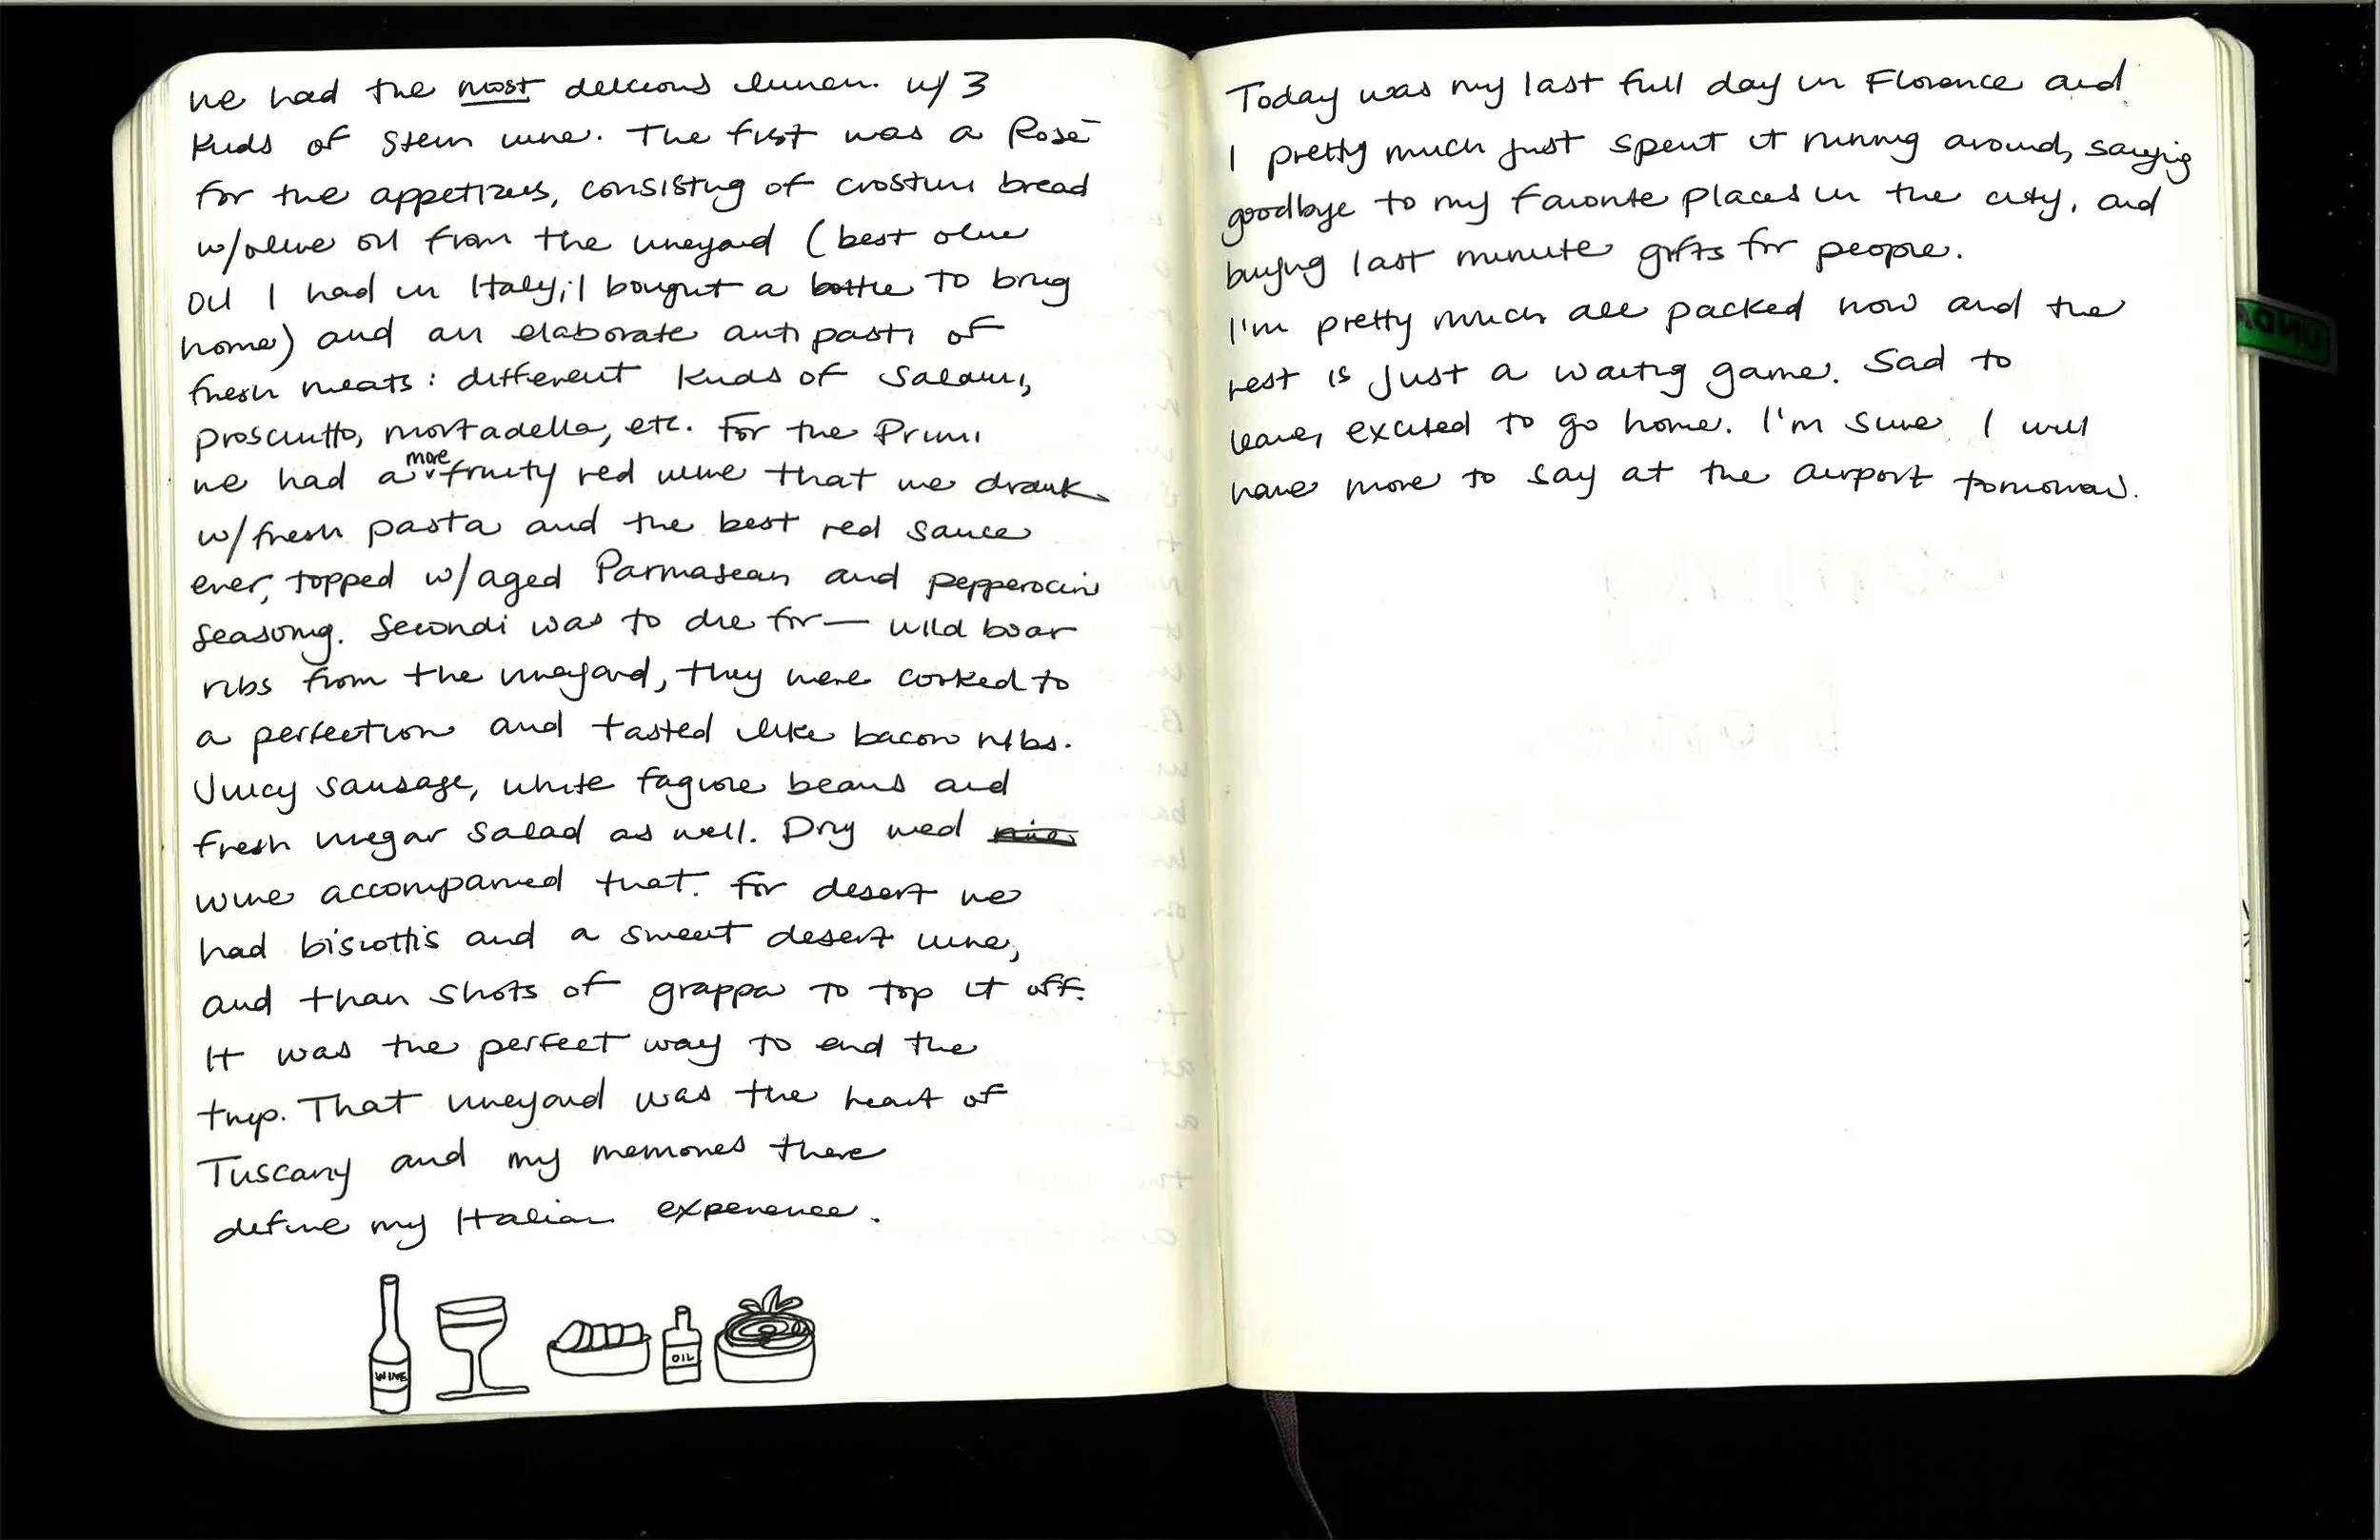 we had the most delicious lunch. w/ 3
kinds of their wine. The first was a Rosé
for the appetizers, consisting of crostini bread
w/olive oil from the vineyard (best olive
oil I had in Italy; I bought a bottle to bring
home) and an elaborate antipasti of
fresh meats: different kinds of salami,
prosciutto, mortadella, etc. For the Primi
we had a more fruity red wine that we drank
w/fresh pasta and the best red sauce
ever, topped w/aged Parmasean and pepperocini
seasoning. Secondi was to die for— wild boar
ribs from the vineyard, they were cooked to
a perfection and tasted like bacon ribs.
Juicy sausage, white fagiole beans and
fresh vinegar salad as well. Dry red
wine accompanied that. For desert we
had biscottis and a sweet desert wine,
and than shots of grappa to top it off.
It was the perfect way to end the
trip. That vineyard was the heart of
Tuscany and my memories there
define my Italian experience.
WINE
OIL
Today was my last full day in Florence and
I pretty much just spent it running around, saying
goodbye to my favorite places in the city, and
buying last minute gifts for people.
I'm pretty much all packed now and the
rest is just a waiting game. Sad to
leave, excited to go home. I'm sure I will
have more to say at the airport tomorrow.